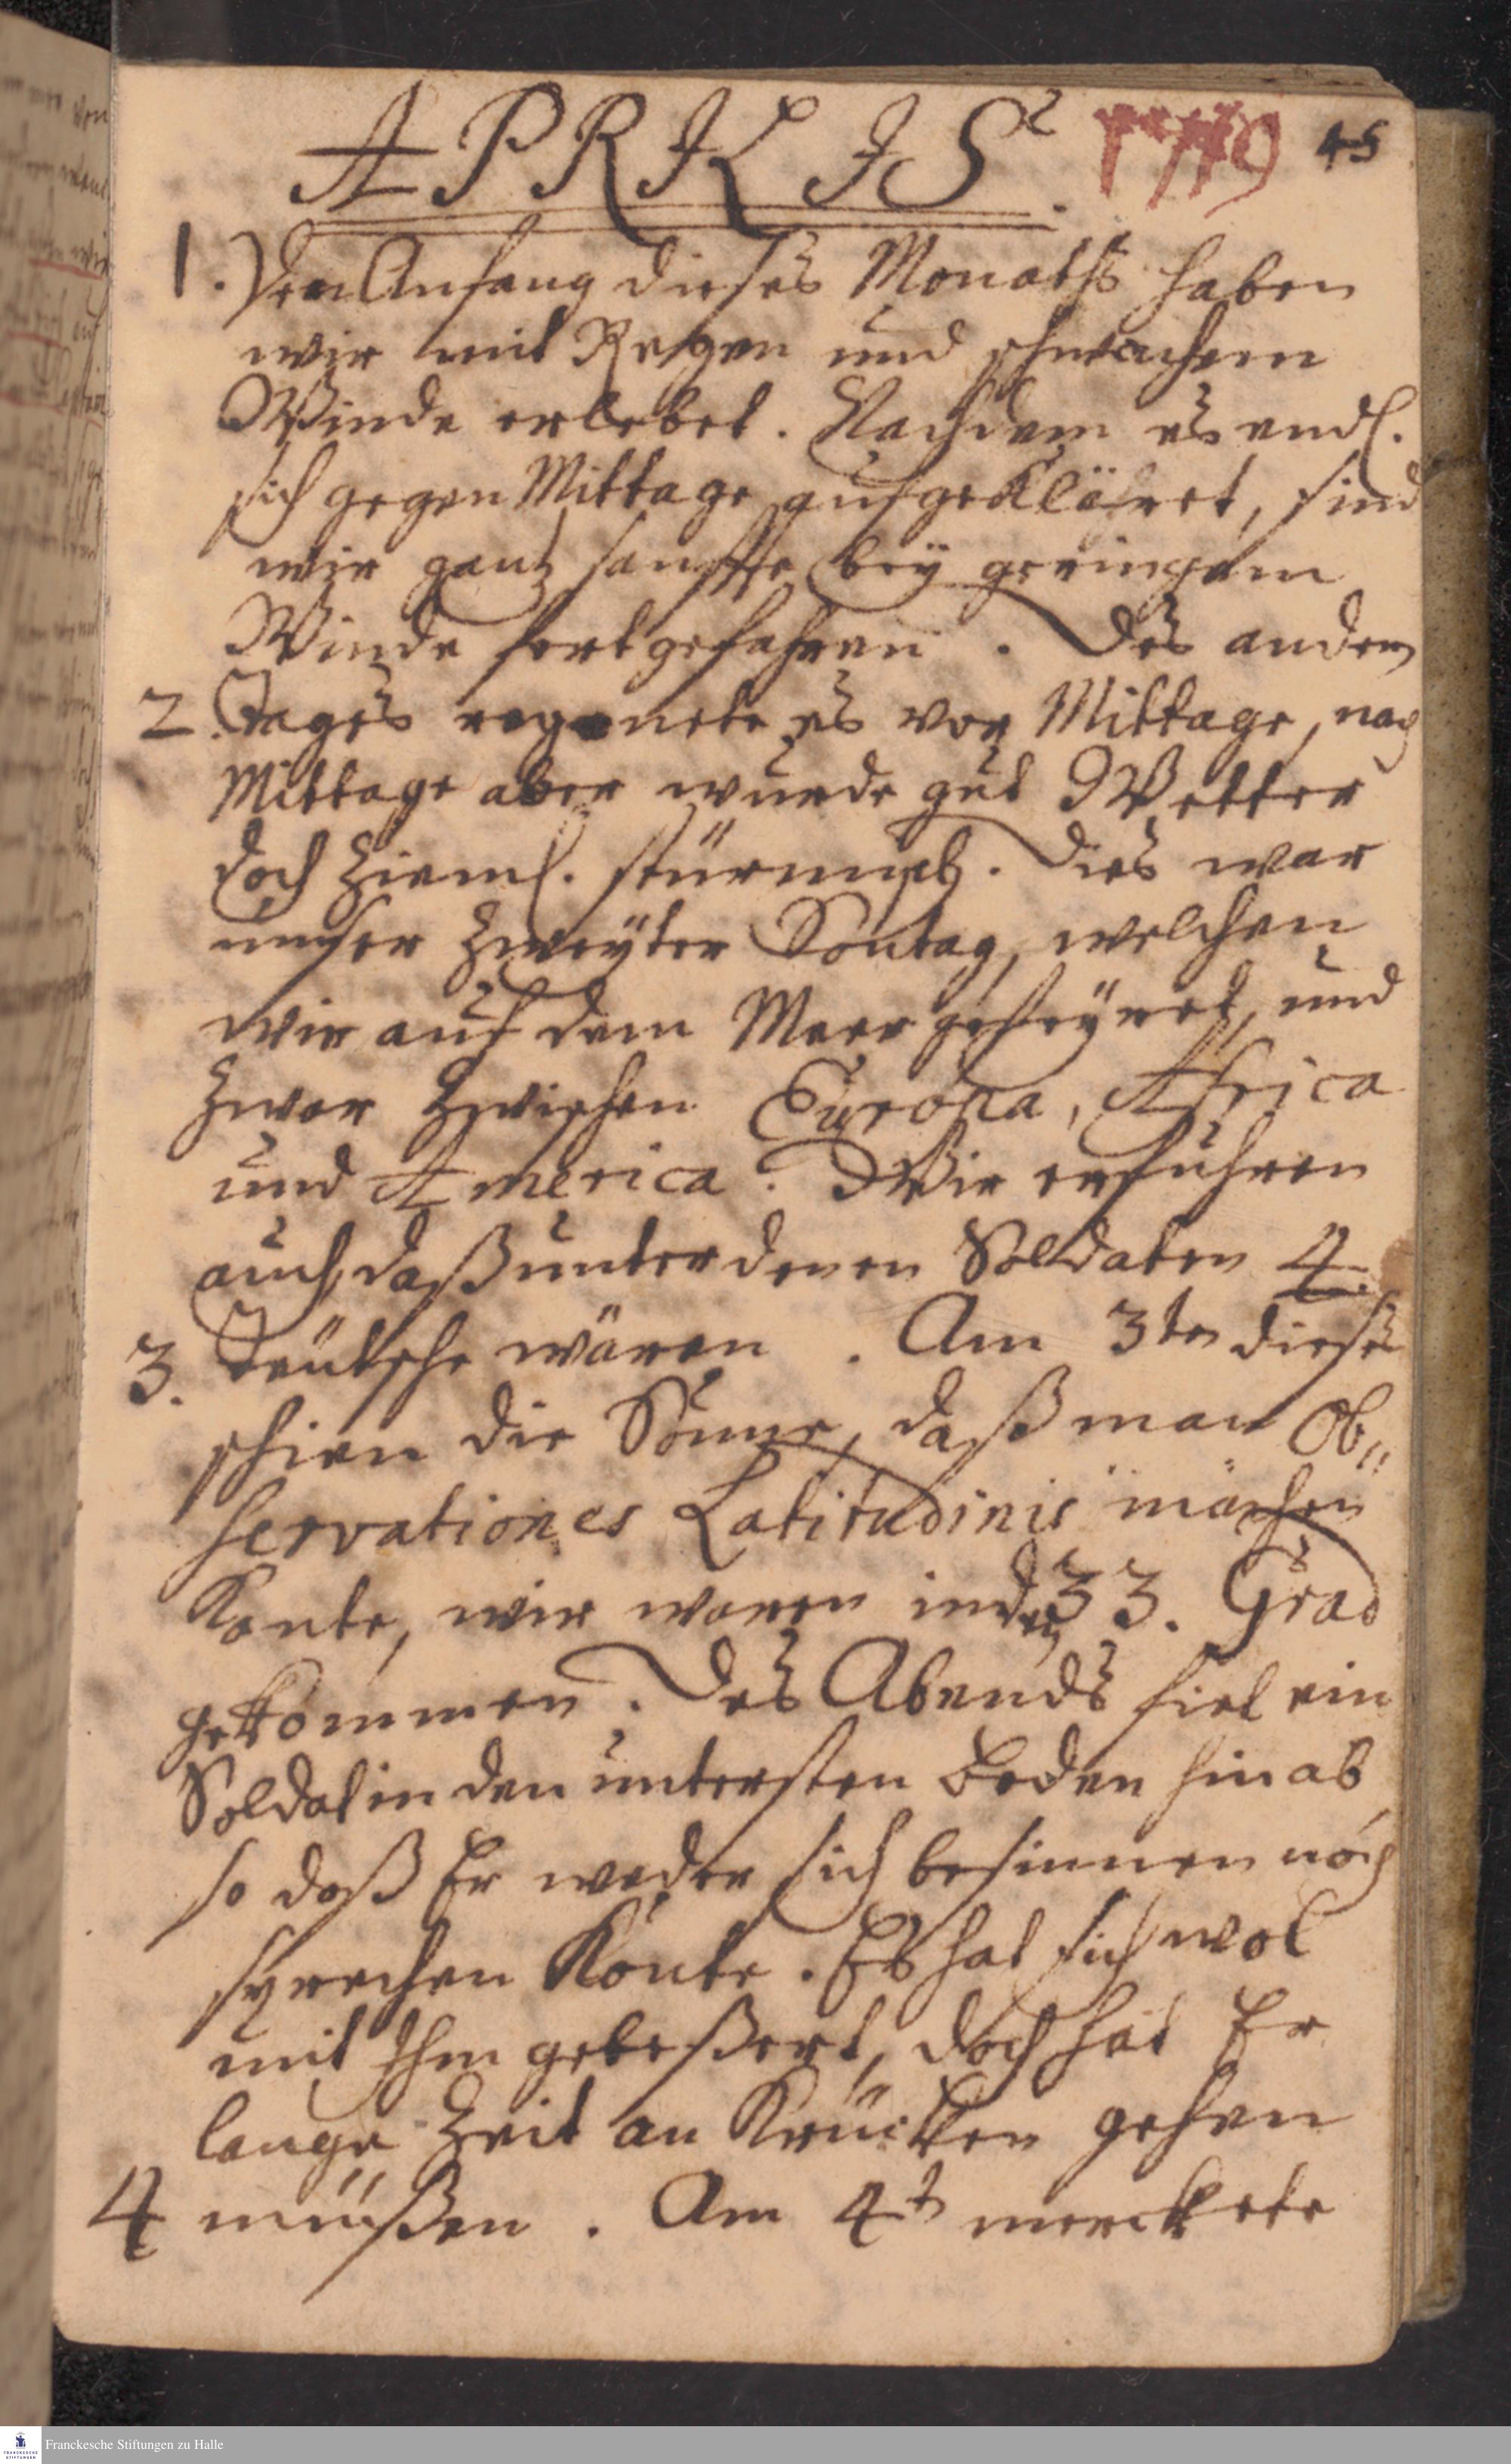 APRILIS 1719 45
1. Den Anfang dieses Monaths haben
wir mit Regen und schwachem
Winde erlebet. Nachdem es endl.
sich gegen Mittage aufgekläret, sind
wir gantz sanffte bey geringem
Winde fortgefahren. Des andern
2. Tages regnete es vor Mittage, nach
Mittage aber wurde gut Wetter
doch zieml. stürmisch. Dies war
unser zweyter Sontag, welchen
wir auf dem Meer gefeyret, und
zwar zwischen Europa, Africa
und America. Wir erfuhren
auch, daß unter denen Soldaten 4.
3. Teütsche wären. Am 3ten dieses
schien die Sonne, daß man Ob„
servationes Latitudinis machen
konte, wir waren in den 33. Grad
gekommen. Des Abends fiel ein
Soldat in den untersten Boden hinab
so daß Er weder sich besinnen noch
sprechen konte. Es hat sich wol
mit Ihm gebeßert, doch hat Er
lange Zeit an Krücken gehen
4 müßen. Am 4t merckete
Franckesche Stiftungen zu Halle